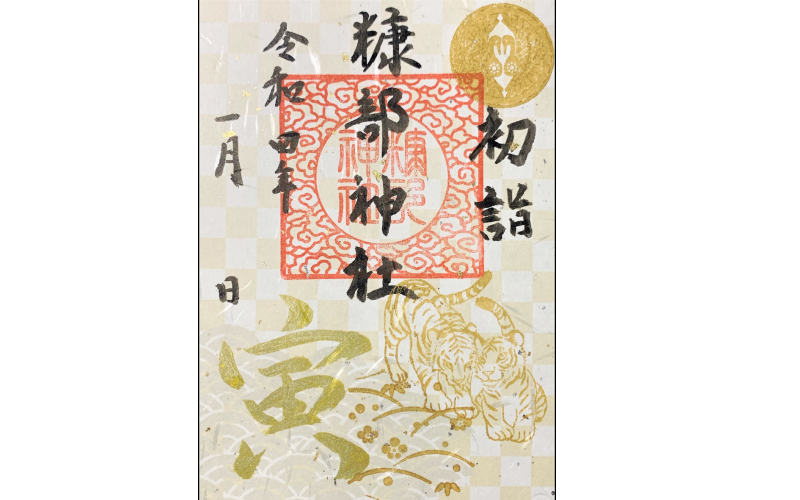 初詣
糠部神社
令和四年
一月 日
寅
糠部
神社